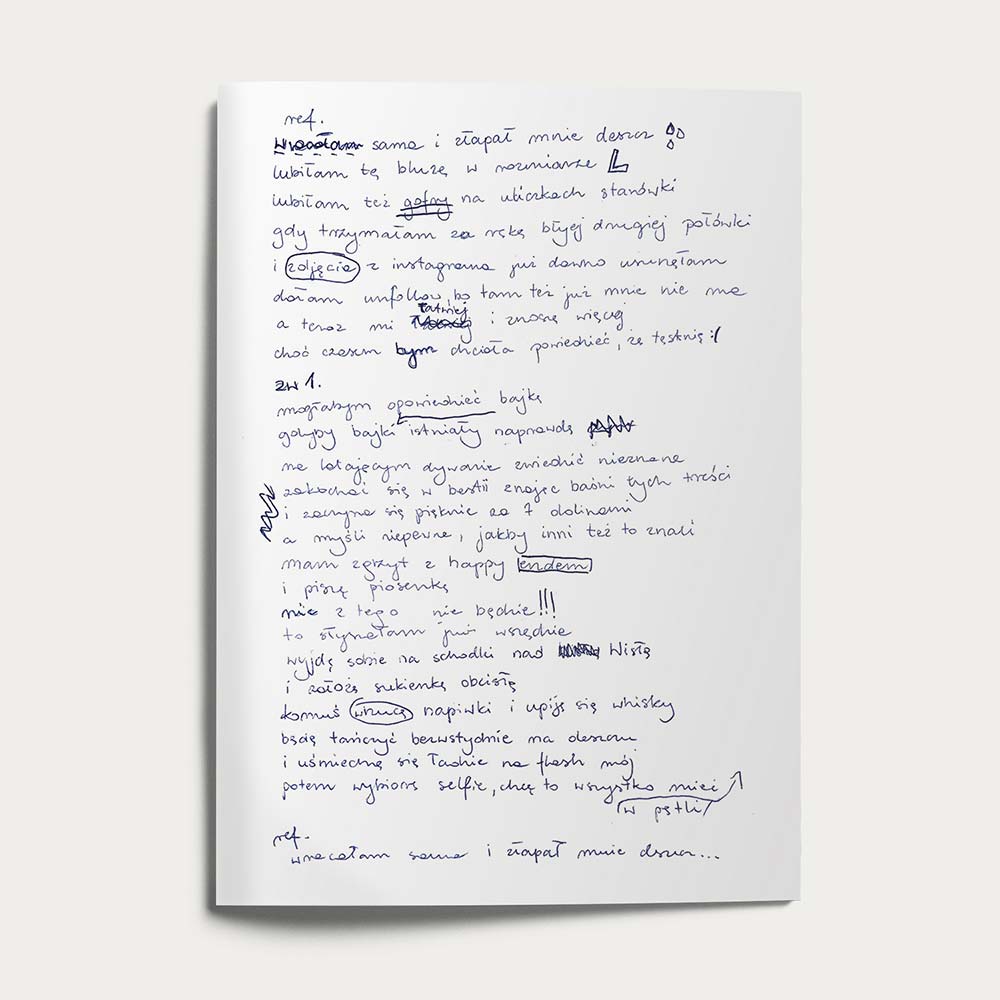 ref.
wracałam sama i złapał mnie deszcz
lubiłam tę bluzę w rozmiarze L
lubiłam też gofry na uliczkach starówki
gdy trzymałam za rękę byłej drugiej połówki
i zdjęcia z instagrama już dawno usunęłam
dałam unfollow, bo tam też już mnie nie ma
a teraz mi łatwiej i znoszę więcej
choć czasem bym chciała powiedzieć, że tęsknię :/
zw 1.
mogłabym opowiedzieć bajkę
gdyby bajki istniały naprawdę
na latającym dywanie zwiedzić nieznane
zakochać się w bestii znając baśni tych treści
i zaczyna się pięknie za 7 dolinami
a myśli niepewne, jakby inni też to znali
mam zgrzyt z happy endem
i piszę piosenkę
nic z tego nie będzie!!!
to słyszałam już wszędzie
wyjdę sobie na schodki nad Wisłę
i założę sukienkę obcisłą
komuś wrzucę napiwki i upiję się whisky
będę tańczyć bezwstydnie na deszczu
i uśmiechnę się ładnie na flash mój
potem wybiorę selfie, chcę to wszystko mieć
w pętli
ref.
wracałam sama i złapał mnie deszcz...